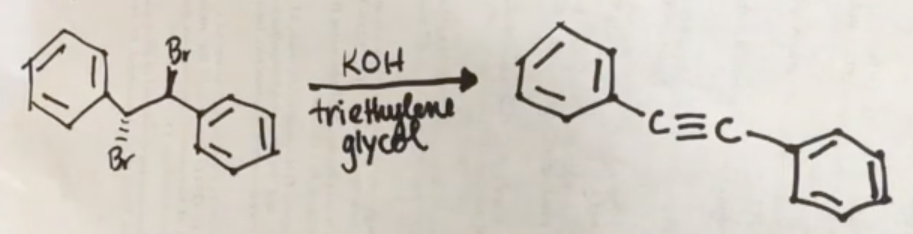 Br
Br
KOH
triethylene
glycol
C≡C